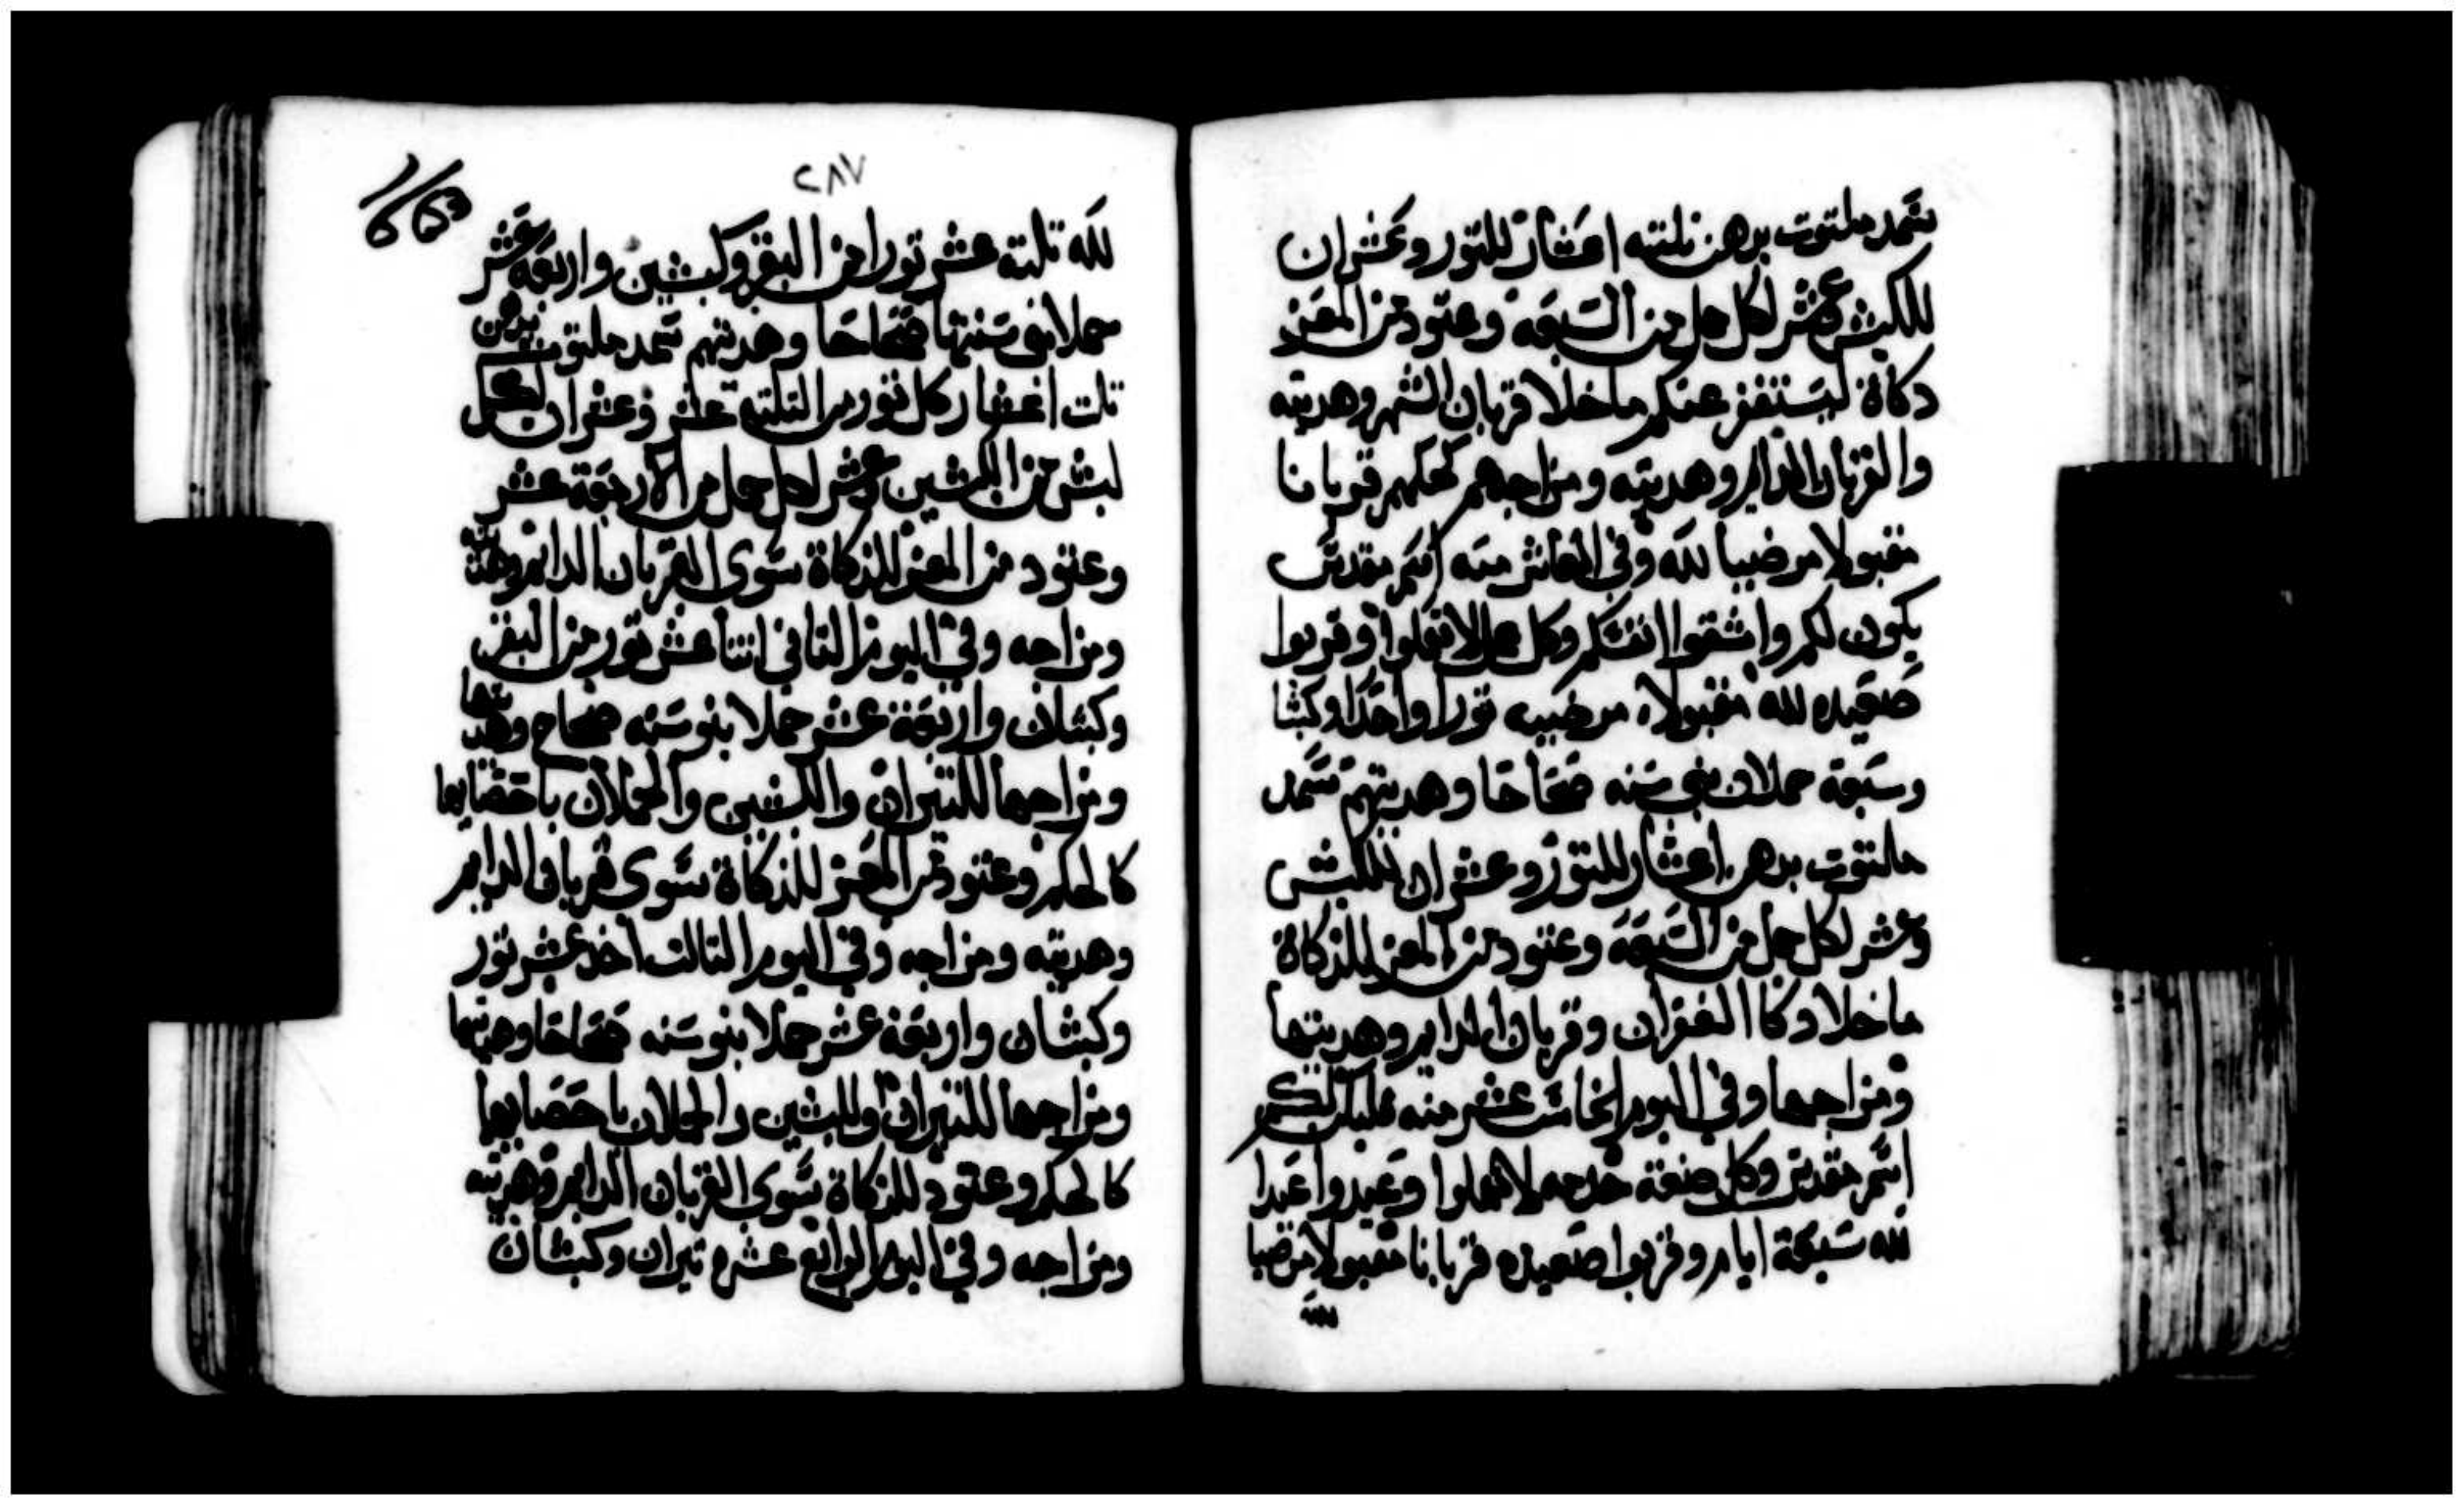 سمد ملتوت بدهن تلته اعشار للتور وعشران
للكبش وعشر لكل حمل من السبعه وعتود من المعز
دكاة ليستغفر عنكم ماخلا قربان الشهر وهديته
والقربان الدايم وهديته ومزاجهم كحكمهم قربانا
مقبولا مرضيا لله وفي العاشر منه اسم مقدس
يكون لكم واشقوا انفسكم وكل عمل لا تعملوا وقربوا
صعيده لله مقبولا مرضيه تورا واحدا وكبشا
وسبعة حملان بني سنه صحاحا وهديتهم سمد
ملتوت بدهن اعشار للتور وعشران للكبش
وعشر لكل حمل من السبعه وعتود من المعز للذكاة
ماخلا دكاا الغفران وقربان الدايم وهديتها
ومزاجها وفي اليوم الخامس عشر منه فليكن لكم
اسم مقدس وكل صنعة خدمه لا تعملوا وعيدوا عيدا
لله سبعة ايام وقربوا صعيده قربانا مقبولا مرضيا
لله
٢٨٧
لله تلتة عشر تورا من البقر وكبشين واربعة عشر
حملا بني سنتها صحاحا وهديتهم سمد ملتوت بدهن
تلت اعشار كل تور من التلته عشر وعشران لكل
كبش من الكبشين وعشر لكل حمل من الاربعة عشر
وعتود من المعز للذكاة سوى القربان الدايم وهديته
ومزاجه وفي اليوم التاني اتنا عشر تور من البقر
وكبشان واربعة عشر حملا بنو سنه صحاح وهديتها
ومزاجها للتيران والكبشين والحملان باحصايها
كالحكم وعتود من المعز للذكاة سوى قربان الدايم
وهديته ومزاجه وفي اليوم التالت احد عشر تور
وكبشان واربعة عشر حملا بنو سنه صحاحا وهديتها
ومزاجها للتيران والكبشين والحملان باحصايها
كالحكم وعتود للذكاة سوى القربان الدايم وهديته
ومزاجه وفي اليوم الرابع عشرة تيران وكبشان